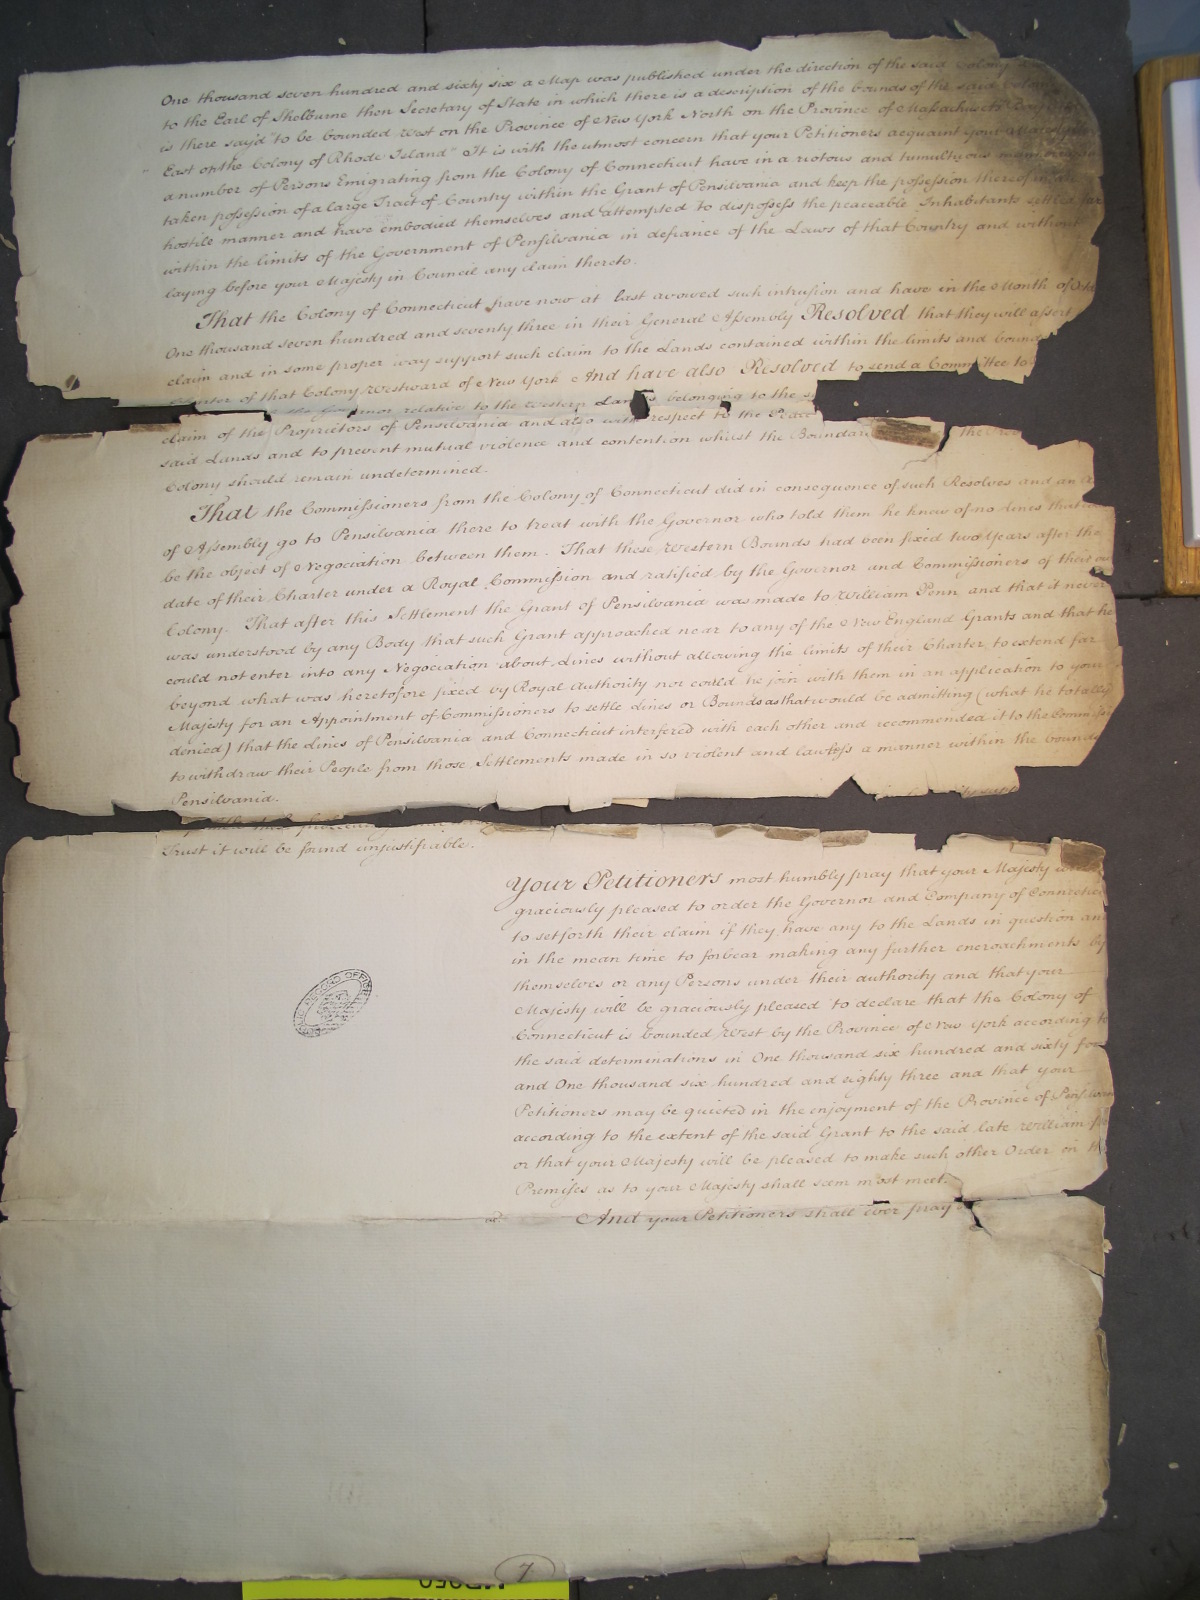 One thousand seven hundred and sixty six a Map was published under the direction of the said Colony
to the Earl of Shelburne then Secretary of State in which there is a description of the bounds of the said Colony
is there say'd "to be bounded West on the Province of New York North on the Province of Massachusets
" East on the Colony of Rhode Island" It is with the utmost concern that your Petitioners acquaint Your Majesty
a number of Persons Emigrating from the Colony of Connecticut have in a riotous and tumultuous manner
taken possession of a large Tract of Country within the Grant of Pensilvania and keep the possession thereof in
hostile manner and have embodied themselves and attempted to dispossess the peaceable Inhabitants settled far
within the limits of the Government of Pensilvania in defiance of the Laws of that Country and without
laying before your Majesty in Council any claim thereto.
That the Colony of Connecticut have now at last avowed such intrusion and have in the Month of
One thousand seven hundred and seventy three in their General Assembly Resolved that they will assert
claim and in some proper way support such claim to the Lands contained within the limits and
Charter of that Colony Westward of New York And have also Resolved to send a Committee to
the Governor relative to the Western Lands belonging to the
claim of the Proprietors of Pensilvania and also with respect to the Peace
said Lands and to prevent mutual violence and contention whilst the
Colony should remain undetermined.
That the Commissioners from the Colony of Connecticut did in consequence of such Resolves and an
of Assembly go to Pensilvania there to treat with the Governor who told them he knew of no Lines that
be the object of Negociation between them. That these Western Bounds had been fixed two Years after the
date of their Charter under a Royal Commission and ratified by the Governor and Commissioners of their
Colony. That after this Settlement the Grant of Pensilvania was made to William Penn and that it never
was understood by any Body that such Grant approached near to any of the New England Grants and that he
could not enter into any Negociation about Lines without allowing the limits of their Charter to extend far
beyond what was heretofore fixed by Royal Authority nor could he join with them in an application to your
Majesty for an Appointment of Commissioners to settle Lines or Bounds as that would be admitting (what he totally
denied) that the Lines of Pensilvania and Connecticut interfered with each other and recommended it to the
to withdraw their People from those Settlements made in so violent and lawless a manner within the
Pensilvania.
Trust it will be found unjustifiable.
Your Petitioners most humbly pray that your Majesty
graciously pleased to order the Governor and Company of
to set forth their claim if they have any to the Lands in question and
in the mean time to forbear making any further encroachments by
themselves or any Persons under their authority and that your
Majesty will be graciously pleased to declare that the Colony of
Connecticut is bounded West by the Province of New York according to
the said determinations in One thousand six hundred and sixty
and One thousand six hundred and eighty three and that your
Petitioners may be quieted in the enjoyment of the Province of
according to the extent of the said Grant to the said late William
or that your Majesty will be pleased to make such other Order on
Premises as to your Majesty shall seem most meet.
And your Petitioners shall ever pray
7